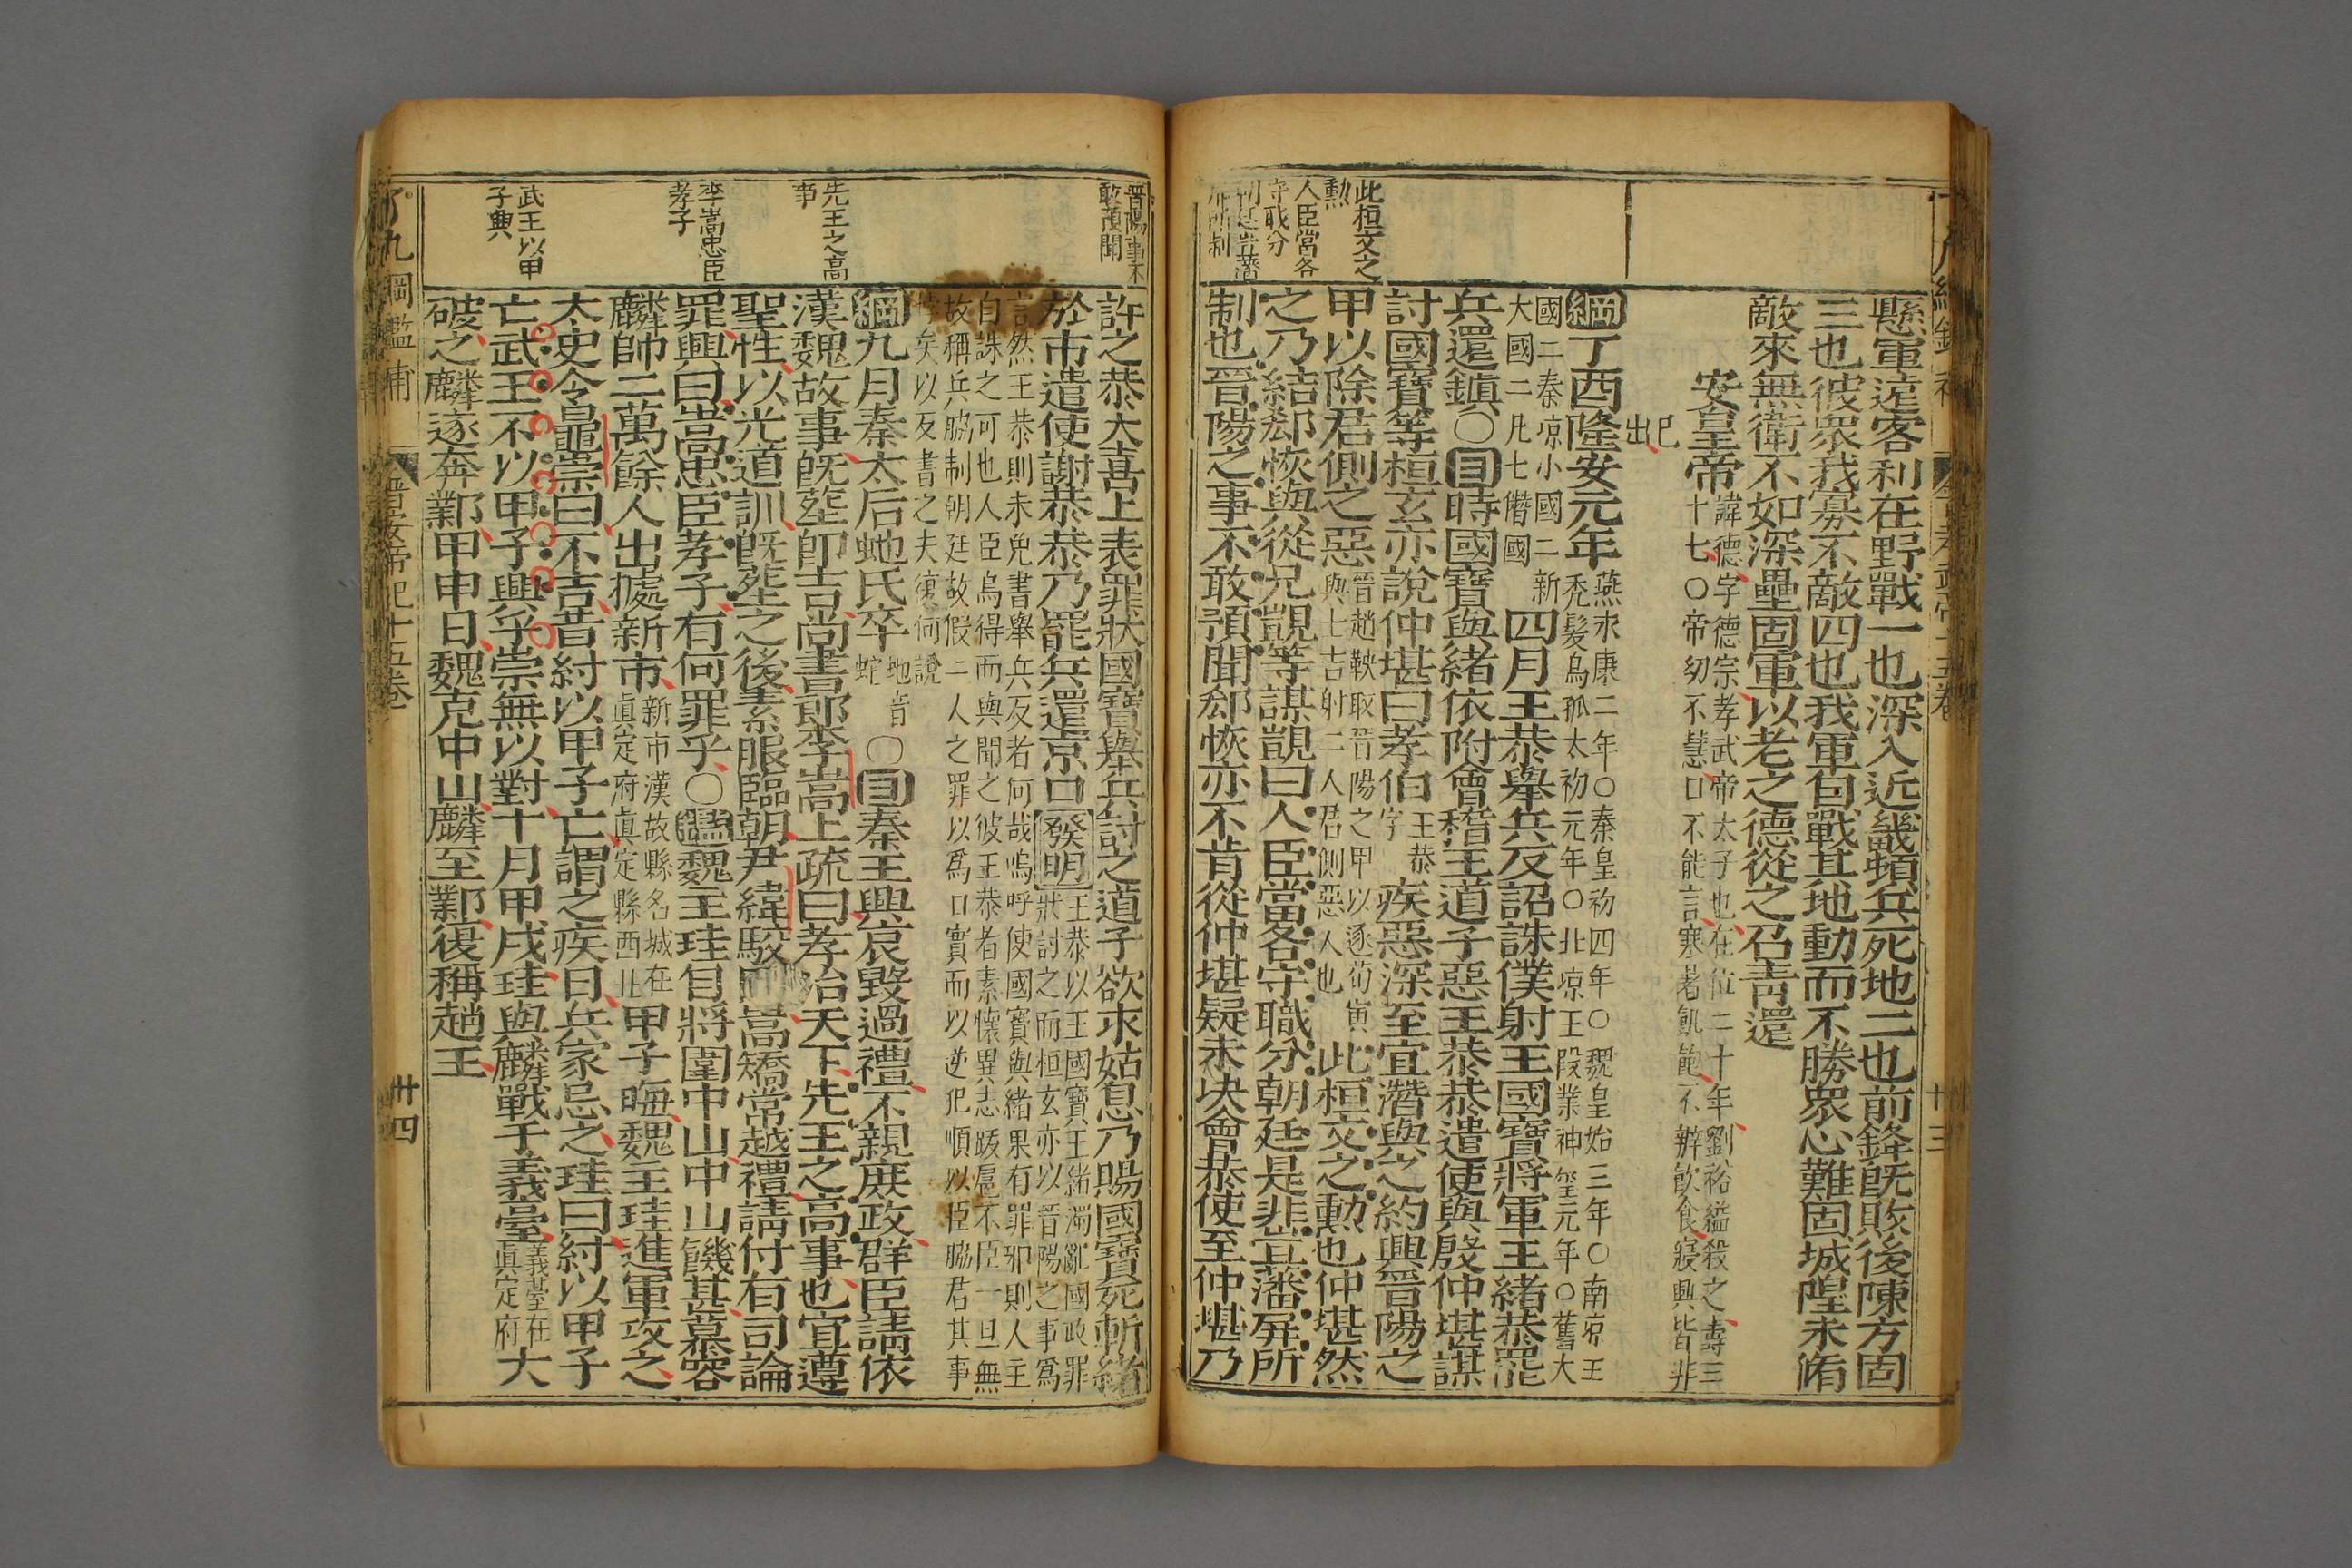 懸軍遠客利在野戰一也深入近畿頓兵死地二也前鋒旣敗後陳方固
三也彼衆我寡不敵四也我軍自戰其地動而不勝衆心難固城隍未脩
敵來無衛不如深壘固軍以老之德從之召青還
安皇帝
諱德字德宗孝武帝太子也在位二十年劉裕縊殺之壽三
十七○帝幼不慧口不能言寒暑飢飽不辨飮食寢興皆非
己
出
綱丁酉隆安元年
燕永康二年○秦皇初四年○魏皇始三年○南凉王
禿髮烏孤太初元年○北凉王段業神璽元年○舊大
國二秦凉小國二新
大國二凡七僭國
四月王恭舉兵反詔誅僕射王國寶將軍王緒恭罷
兵還鎮○目時國寶與緒依附會稽王道子惡王恭恭遣使與殷仲堪謀
討國寶等桓玄亦說仲堪曰孝伯
王恭
字
疾惡深至宜潛與之約興晉陽之
甲以除君側之惡
晉趙鞅取晉陽之甲以逐荀寅
與士吉射二人君側惡人也
此桓文之勳也仲堪然
之乃結郄恢與從兄覬等謀覬曰人臣當各守職分朝廷是非豈藩屏所
制也晉陽之事不敢預聞郄恢亦不肯從仲堪疑未決會恭使至仲堪乃
此桓文之
勲
人臣當各
守職分
朝廷豈藩
屏所制
許之恭大喜上表罪狀國寶舉兵討之道子欲求姑息乃賜國寶死斬緒
於市遣使謝恭恭乃罷兵還京口
發明
王恭以王國寶王緒濁亂國政罪
狀討之而桓玄亦以晉陽之事爲
言然王恭則未免書舉兵反者何哉嗚呼使國寶與緒果有罪邪則人主
自誅之可也人臣烏得而與聞之彼王恭者素懷異志跋扈不臣一旦無
故稱兵脇制朝廷故假二人之罪以爲口實而以逆犯順以臣脇君其事
悖矣以反書之夫復何說
綱九月秦太后虵氏卒
虵音
蛇
○目秦王興哀毀過禮不親庶政群臣請依
漢魏故事旣塟卽吉尚書郎李嵩上疏曰孝治天下先王之高事也宜遵
聖性以光道訓旣塟之後素服臨朝尹緯駁曰嵩矯常越禮請付有司論
罪興曰嵩忠臣孝子有何罪乎○鑑魏主珪自將圍中山中山饑甚慕容
麟帥二萬餘人出據新市
新市漢故縣名城在
眞定府眞定縣西北
甲子晦魏主珪進軍攻之
太史令鼂崇曰不吉昔紂以甲子亡謂之疾日兵家忌之珪曰紂以甲子
亡武王不以甲子興乎崇無以對十月甲戌珪與麟戰于義臺
義臺在
眞定府
大
破之麟逐奔鄴甲申日魏克中山麟至鄴復稱趙王
晉陽事不
敢預聞
先王之高
事
李嵩忠臣
孝子
武王以甲
子興
了凡綱鑑補
晉安帝紀十五卷
卅四